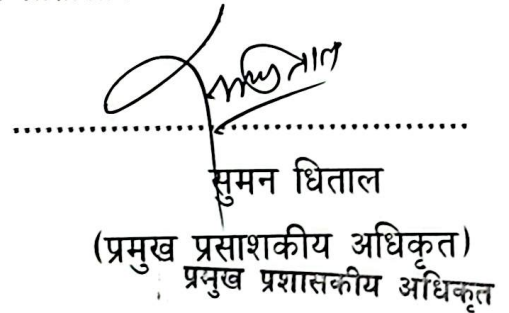 सुमन धिताल
(प्रमुख प्रसाशकीय अधिकृत)
प्रमुख प्रशासकीय अधिकृत